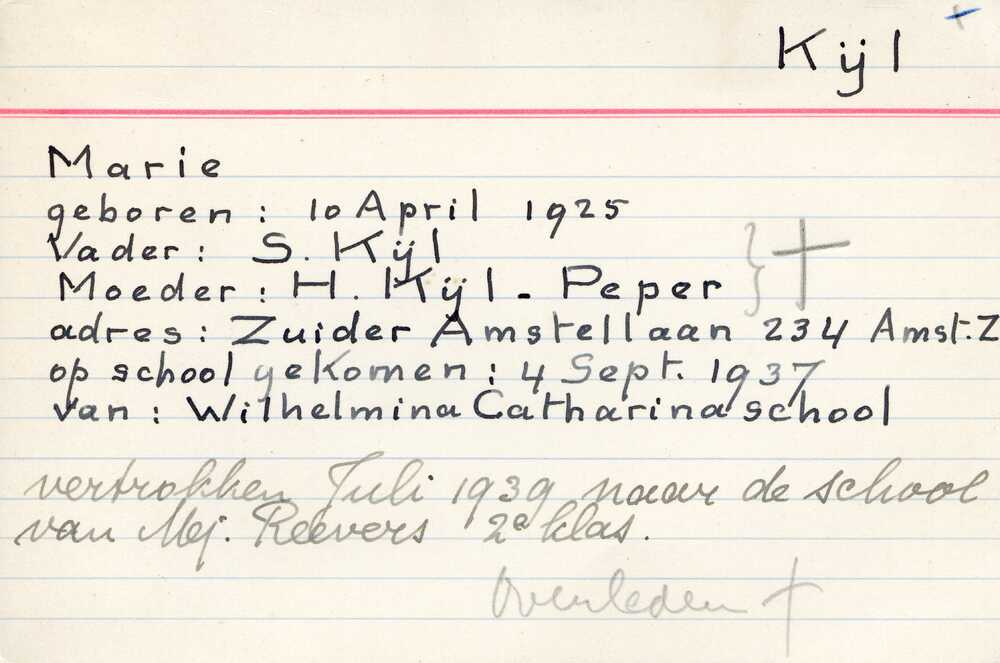 Kijl
Marie
geboren: 10 April 1925
Vader: S. Kijl
Moeder: H. Kijl - Peper
adres: Zuider Amstellaan 234 Amst. Z
op school gekomen: 4 Sept. 1937
van: Wilhelmina Catharina school
vertrokken Juli 1939 naar de school
van Mej. Reevers 2e klas.
Overleden †